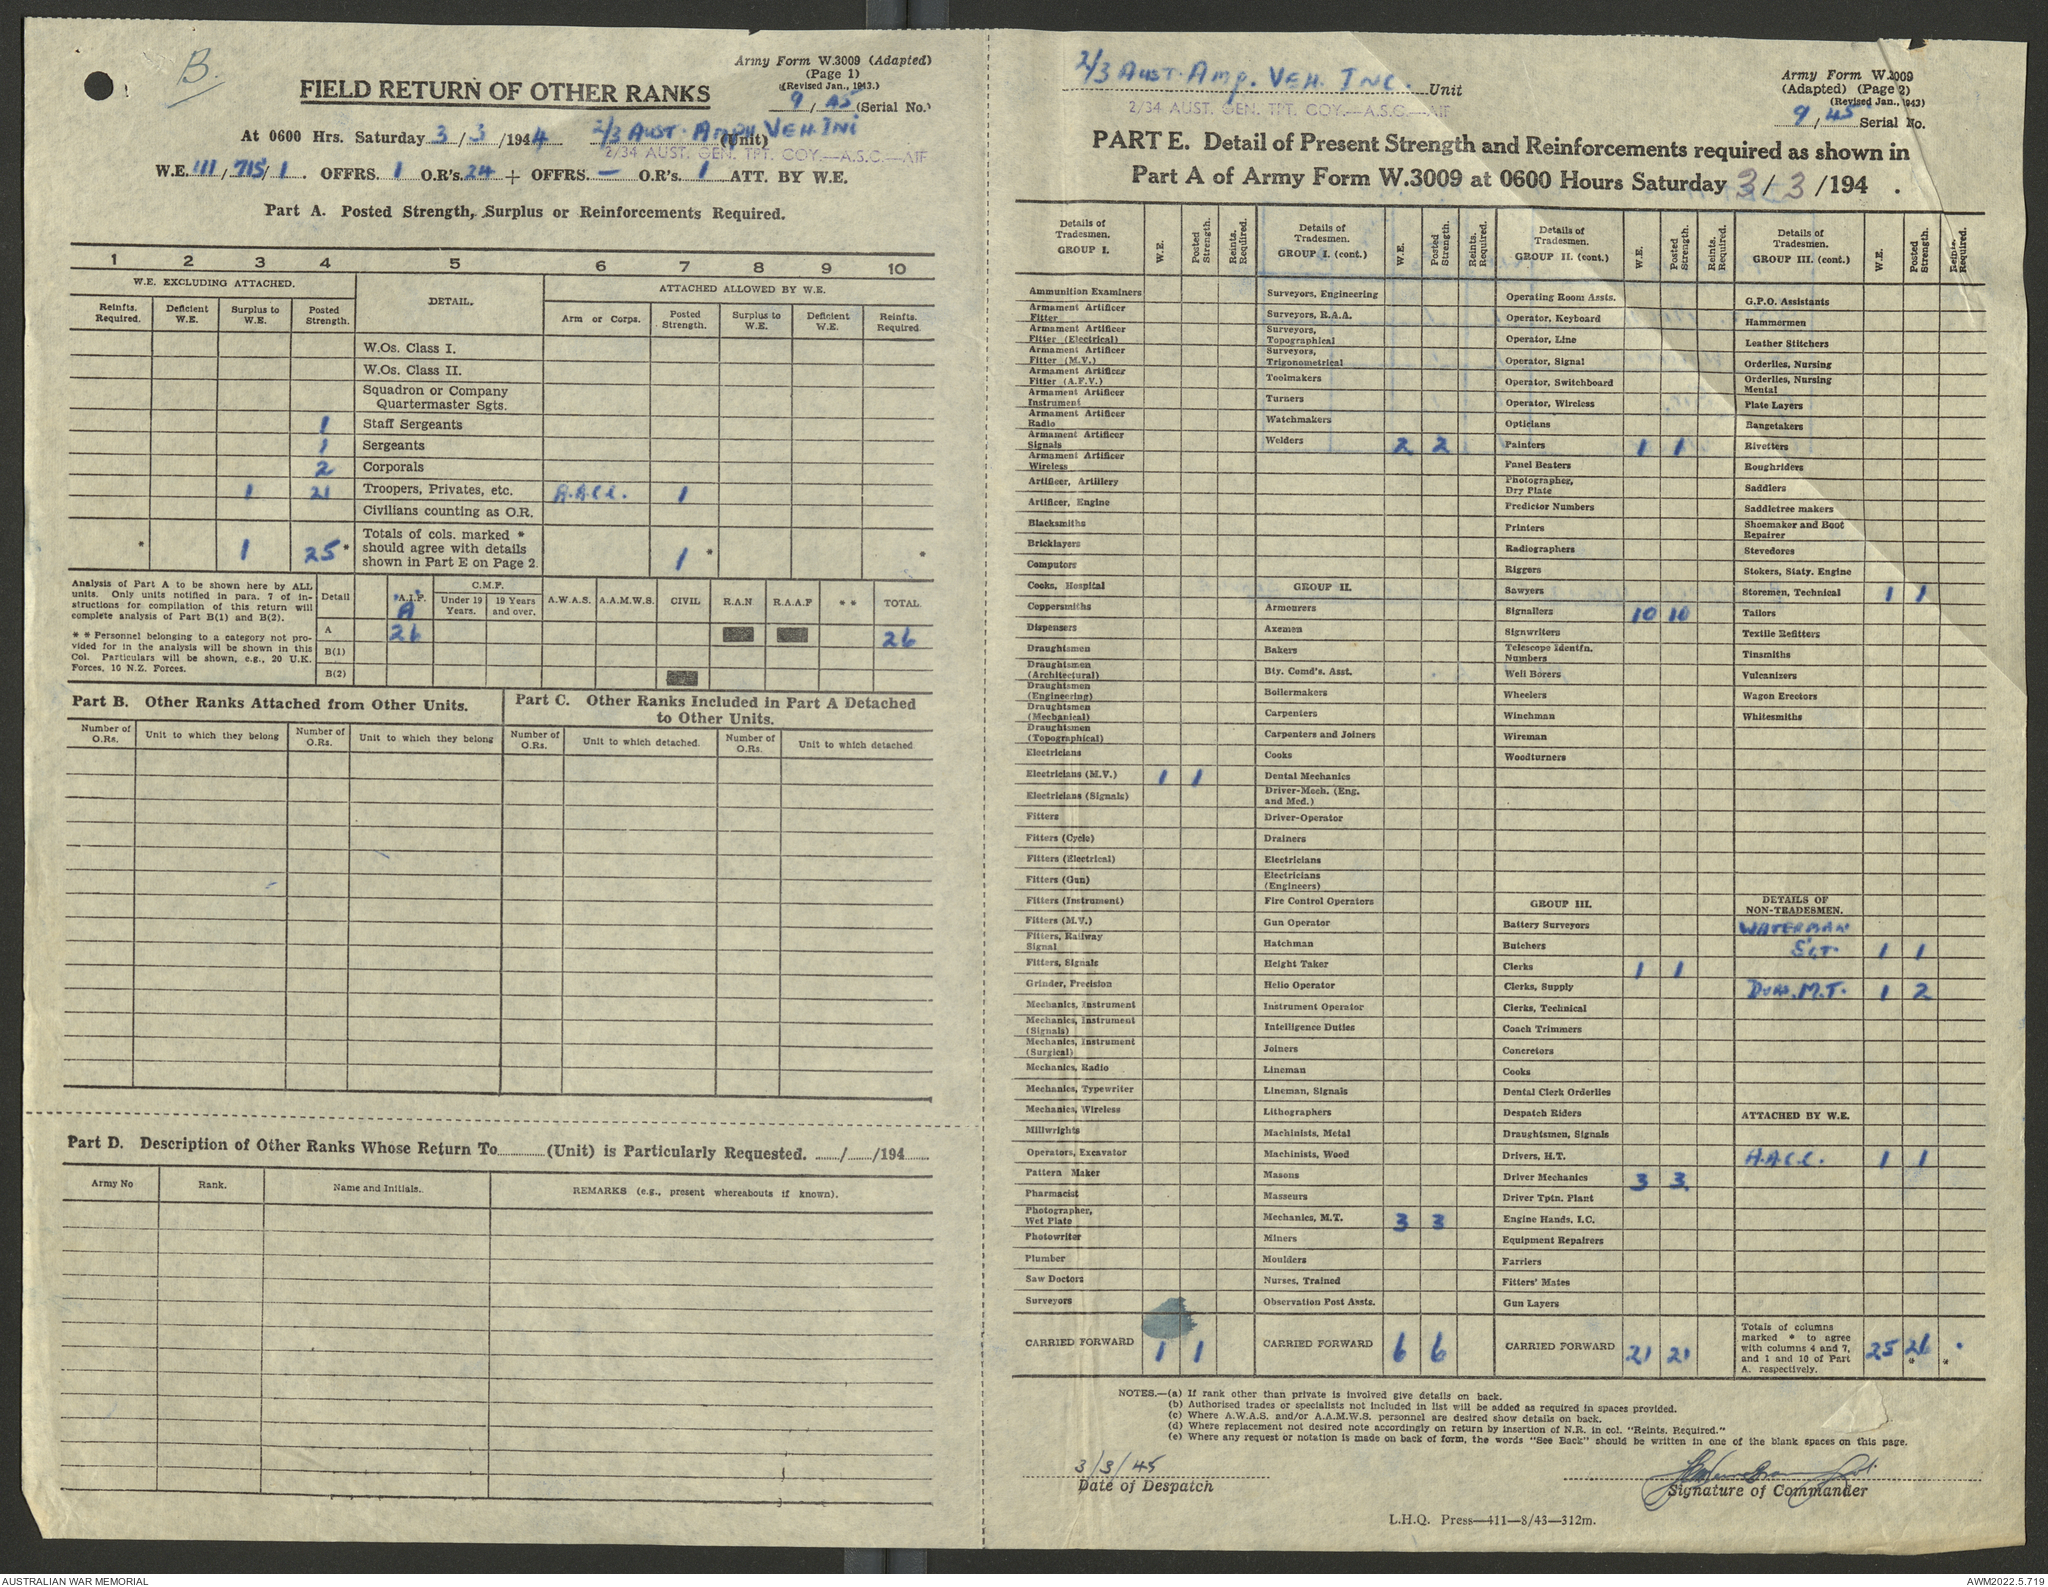 B.
Army Form W.3009 (Adapted)
(Page 1)
(Revised Jan., 1943.)
9/45 (Serial No.)
FIELD RETURN OF OTHER RANKS
At 0600 Hrs. Saturday 3/3/1944 2/3 AUST. AMPH VEH. (Unit)
2/34 AUST. GEN. TPT. COY.—A.S.C.—AIF
W.E. 111/715/1. OFFRS. 1 O.R's. 24 + OFFRS. — O.R's. 1 ATT. BY W.E.
Part A. Posted Strength, Surplus or Reinforcements Required.
1 2 3 4 5 6 7 8 9 10
W.E. EXCLUDING ATTACHED. DETAIL. ATTACHED ALLOWED BY W.E.
Reinfts. Required. Deficient W.E. Surplus to W.E. Posted Strength. Arm or Corps. Posted Strength. Surplus to W.E. Deficient W.E. Reints. Required.
W.Os. Class I.
W.Os. Class II.
Squadron or Company
Quartermaster Sgts.
1 Staff Sergeants
1 Sergeants
2 Corporals
1 21 Troopers, Privates, etc. A.A.C.C. 1
Civilians counting as O.R.
* 1 25* Totals of cols. marked * should agree with details shown in Part E on Page 2. 1 * *
Analysis of Part A to be shown here by ALL
units. Only units notified in para. 7 of in-
structions for compilation of this return will
complete analysis of Part B(1) and B(2).
* * Personnel belonging to a category not pro-
vided for in the analysis will be shown in this
Col. Particulars will be shown, e.g., 20 U.K.
Forces, 10 N.Z. Forces.
Detail A.I.F. C.M.F. Under 19 Years. 19 Years and over. A.W.A.S. A.A.M.W.S. CIVIL R.A.N R.A.A.F * * TOTAL
A 26 26
B(1)
B(2)
Part B. Other Ranks Attached from Other Units.
Number of O.Rs. Unit to which they belong Number of O.Rs. Unit to which they belong
Part C. Other Ranks Included in Part A Detached
to Other Units.
Number of O.Rs. Unit to which detached. Number of O.Rs. Unit to which detached
Part D. Description of Other Ranks Whose Return To (Unit) is Particularly Requested. / /194
Army No Rank. Name and Initials. REMARKS (e.g., present whereabouts if known).
2/3 AUST. AMP. VEH. INC. Unit
2/34 AUST. GEN. TPT. COY.—A.S.C.—AIF
Army Form W.3009
(Adapted) (Page 2)
(Revised Jan., 1943)
9/45 Serial No.
PART E. Detail of Present Strength and Reinforcements required as shown in
Part A of Army Form W.3009 at 0600 Hours Saturday 3/3/194 .
Details of Tradesmen. GROUP I. W.E. Posted Strength. Reints. Required.
Ammunition Examiners
Armament Artificer Fitter
Armament Artificer Fitter (Electrical)
Armament Artificer Fitter (M.V.)
Armament Artificer Fitter (A.F.V.)
Armament Artificer Instrument
Armament Artificer Radio
Armament Artificer Signals
Armament Artificer Wireless
Artificer, Artillery
Artificer, Engine
Blacksmiths
Bricklayers
Computors
Cooks, Hospital
Coppersmiths
Dispensers
Draughtsmen
Draughtsmen (Architectural)
Draughtsmen (Engineering)
Draughtsmen (Mechanical)
Draughtsmen (Topographical)
Electricians
Electricians (M.V.) 1 1
Electricians (Signals)
Fitters
Fitters (Cycle)
Fitters (Electrical)
Fitters (Gun)
Fitters (Instrument)
Fitters (M.V.)
Fitters, Railway Signal
Fitters, Signals
Grinder, Precision
Mechanics, Instrument
Mechanics, Instrument (Signals)
Mechanics, Instrument (Surgical)
Mechanics, Radio
Mechanics, Typewriter
Mechanics, Wireless
Millwrights
Operators, Excavator
Pattern Maker
Pharmacist
Photographer, Wet Plate
Photowriter
Plumber
Saw Doctors
Surveyors
CARRIED FORWARD 1 1
Details of Tradesmen. GROUP I. (cont.) W.E. Posted Strength. Reints. Required.
Surveyors, Engineering
Surveyors, R.A.A.
Surveyors, Topographical
Surveyors, Trigonometrical
Toolmakers
Turners
Watchmakers
Welders 2 2
GROUP II.
Armourers
Axemen
Bakers
Bty. Comd's. Asst.
Boilermakers
Carpenters
Carpenters and Joiners
Cooks
Dental Mechanics
Driver-Mech. (Eng. and Med.)
Driver-Operator
Drainers
Electricians
Electricians (Engineers)
Fire Control Operators
Gun Operator
Hatchman
Height Taker
Helio Operator
Instrument Operator
Intelligence Duties
Joiners
Lineman
Lineman, Signals
Lithographers
Machinists, Metal
Machinists, Wood
Masons
Masseurs
Mechanics, M.T. 3 3
Miners
Moulders
Nurses, Trained
Observation Post Assts.
CARRIED FORWARD 6 6
Details of Tradesmen. GROUP II. (cont.) W.E. Posted Strength. Reints. Required.
Operating Room Assts.
Operator, Keyboard
Operator, Line
Operator, Signal
Operator, Switchboard
Operator, Wireless
Opticians
Painters 1 1
Panel Beaters
Photographer, Dry Plate
Predictor Numbers
Printers
Radiographers
Riggers
Sawyers
Signallers 10 10
Signwriters
Telescope Identfn. Numbers
Well Borers
Wheelers
Winchman
Wireman
Woodturners
GROUP III.
Battery Surveyors
Butchers
Clerks 1 1
Clerks, Supply
Clerks, Technical
Coach Trimmers
Concretors
Cooks
Dental Clerk Orderlies
Despatch Riders
Draughtsmen, Signals
Drivers, H.T.
Driver Mechanics 3 3
Driver Tptn. Plant
Engine Hands, I.C.
Equipment Repairers
Farriers
Fitters' Mates
Gun Layers
CARRIED FORWARD 21 21
Details of Tradesmen. GROUP III. (cont.) W.E. Posted Strength. Reints. Required.
G.P.O. Assistants
Hammermen
Leather Stitchers
Orderlies, Nursing
Orderlies, Nursing Mental
Plate Layers
Rangetakers
Rivetters
Roughriders
Saddlers
Saddletree makers
Shoemaker and Boot Repairer
Stevedores
Stokers, Staty. Engine
Storemen, Technical 1 1
Tailors
Textile Refitters
Tinsmiths
Vulcanizers
Wagon Erectors
Whitesmiths
DETAILS OF NON-TRADESMEN.
WATERMAN
SGT. 1 1
DVRS. M.T. 1 2
ATTACHED BY W.E.
A.A.C.C. 1 1
Totals of columns marked * to agree with columns 4 and 7, and 1 and 10 of Part A. respectively. 25 26 * *
NOTES.—(a) If rank other than private is involved give details on back.
(b) Authorised trades or specialists not included in list will be added as required in spaces provided.
(c) Where A.W.A.S. and/or A.A.M.W.S. personnel are desired show details on back.
(d) Where replacement not desired note accordingly on return by insertion of N.R. in col. "Reints. Required."
(e) Where any request or notation is made on back of form, the words "See Back" should be written in one of the blank spaces on this page.
3/3/45
Date of Despatch
Signature of Commander
L.H.Q. Press—411—8/43—312m.
AUSTRALIAN WAR MEMORIAL
AWM2022.5.719